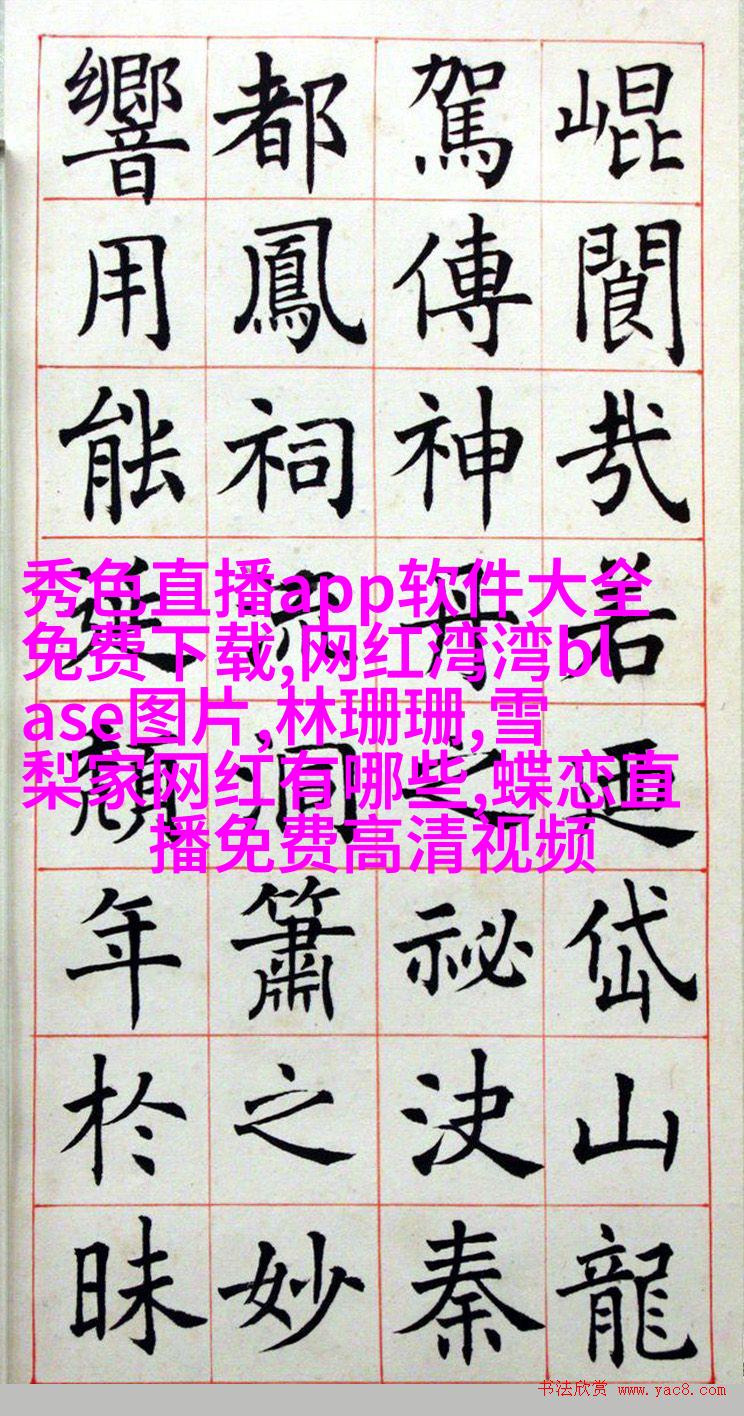 崐閬哉若廼岱山龍
駕傳神丹之祕決秦
都鳳祠流洞簫之妙
響用能頹年於昧
秀色直播app软件大全
免费下载,网红湾湾bl
ase图片,林珊珊,雪
梨家网红有哪些,蝶恋直
播免费高清视频
书法欣赏 www.yac8.com